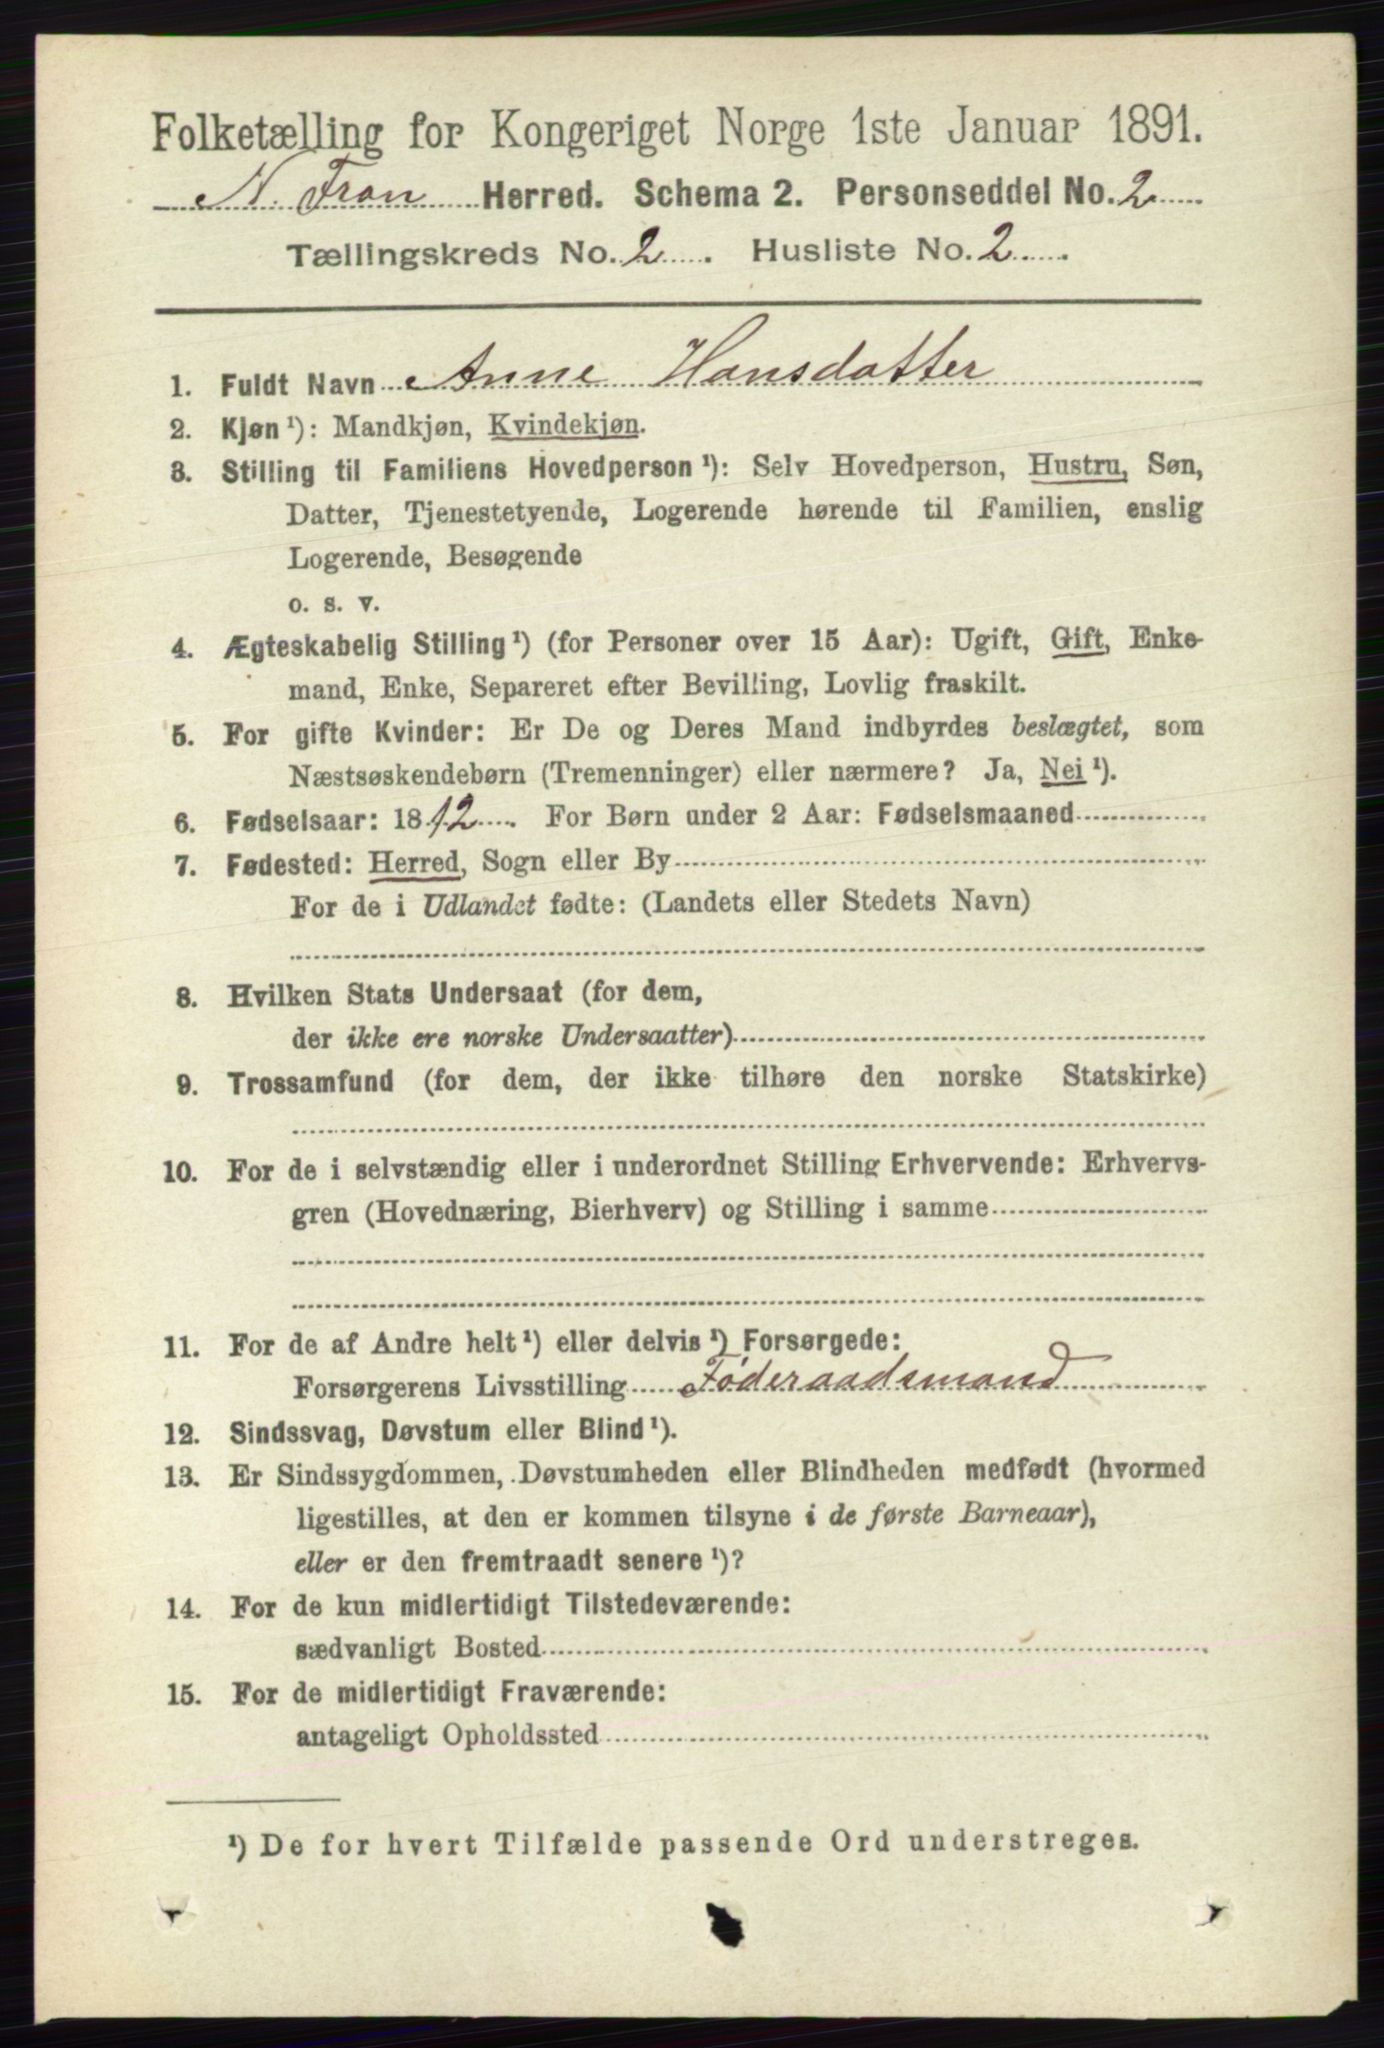 Folketælling for Kongeriget Norge 1ste Januar 1891.
N. Fron Herred. Schema 2. Personseddel No. 2
Tællingskreds No. 2. Husliste No. 2.
1. Fuldt Navn Anne Hansdatter
2. Kjøn ¹): Mandkjøn, Kvindekjøn.
3. Stilling til Familiens Hovedperson ¹): Selv Hovedperson, Hustru, Søn,
Datter, Tjenestetyende, Logerende hørende til Familien, enslig
Logerende, Besøgende
o. s. v.
4. Ægteskabelig Stilling ¹) (for Personer over 15 Aar): Ugift, Gift, Enke-
mand, Enke, Separeret efter Bevilling, Lovlig fraskilt.
5. For gifte Kvinder: Er De og Deres Mand indbyrdes beslægtet, som
Næstsøskendebørn (Tremenninger) eller nærmere? Ja, Nei ¹).
6. Fødselsaar: 1812. For Børn under 2 Aar: Fødselsmaaned
7. Fødested: Herred, Sogn eller By
For de i Udlandet fødte: (Landets eller Stedets Navn)
8. Hvilken Stats Undersaat (for dem,
der ikke ere norske Undersaatter)
9. Trossamfund (for dem, der ikke tilhøre den norske Statskirke)
10. For de i selvstændig eller i underordnet Stilling Erhvervende: Erhvervs-
gren (Hovednæring, Bierhverv) og Stilling i samme
11. For de af Andre helt ¹) eller delvis ¹) Forsørgede:
Forsørgerens Livsstilling Føderaadsmand
12. Sindssvag, Døvstum eller Blind ¹).
13. Er Sindssygdommen, Døvstumheden eller Blindheden medfødt (hvormed
ligestilles, at den er kommen tilsyne i de første Barneaar),
eller er den fremtraadt senere ¹)?
14. For de kun midlertidigt Tilstedeværende:
sædvanligt Bosted
15. For de midlertidigt Fraværende:
antageligt Opholdssted
¹) De for hvert Tilfælde passende Ord understreges.